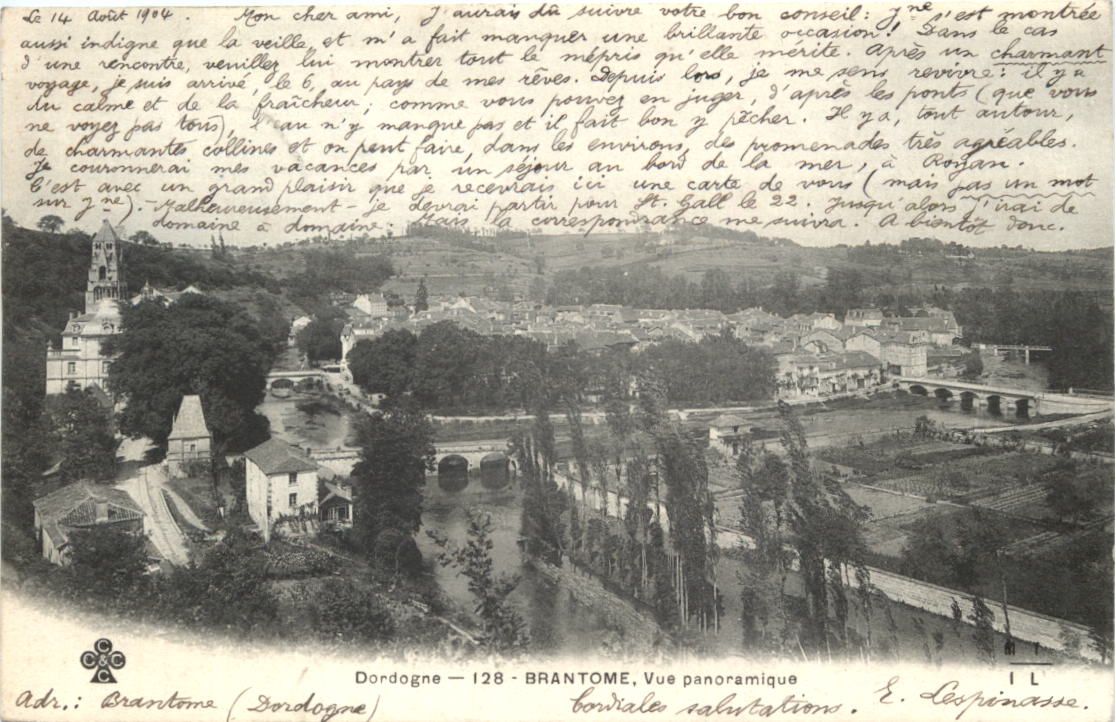 Le 14 Août 1904. Mon cher ami, J'aurais dû suivre votre bon conseil: Jne s'est montrée
aussi indigne que la veille, et m'a fait manquer une brillante occasion! Dans le cas
d'une rencontre, veuillez lui montrer tout le mépris qu'elle mérite. Après un charmant
voyage, je suis arrivé, le 6, au pays de mes rêves. Depuis lors, je me sens revivre: il y a
du calme et de la fraîcheur; comme vous pouvez en juger, d'après les ponts (que vous
ne voyez pas tous), l'eau n'y manque pas et il fait bon y pêcher. Il y a, tout autour,
de charmantes collines et on peut faire, dans les environs, des promenades très agréables.
Je couronnerai mes vacances par un séjour au bord de la mer, à Royan.
C'est avec un grand plaisir que je recevrais ici une carte de vous (mais pas un mot
sur Jne). - Malheureusement - je devrai partir pour St. Gall le 22. Jusqu'alors j'irai de
domaine à domaine. Mais la correspondance me suivra. A bientôt donc.
C C C C
Dordogne — 128 - BRANTOME, Vue panoramique
M T
I L
Adr.: Brantome (Dordogne) Cordiales salutations. E. Lespinasse.